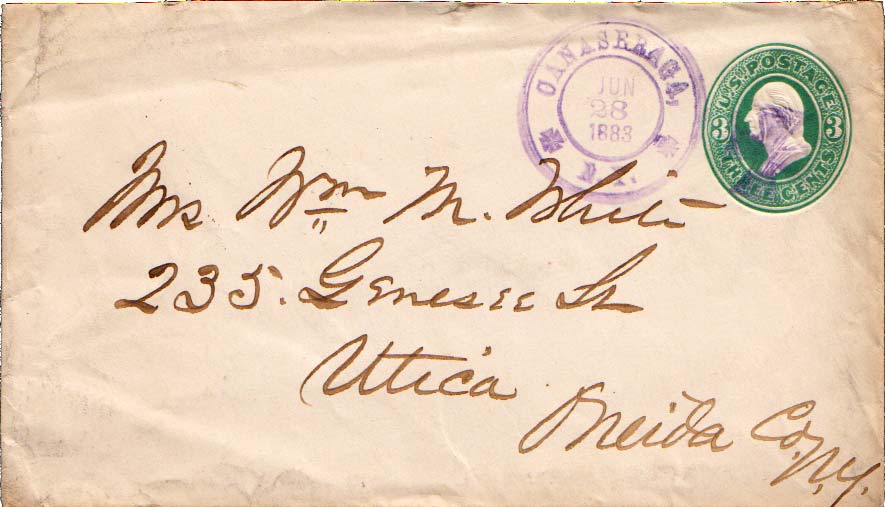 CANASERAGA,
JUN
28
1883
N.Y.
U.S. POSTAGE
3 3
THREE CENTS
Mrs Wm M. White
235. Genesee St
Utica
Oneida Co,
N.Y.